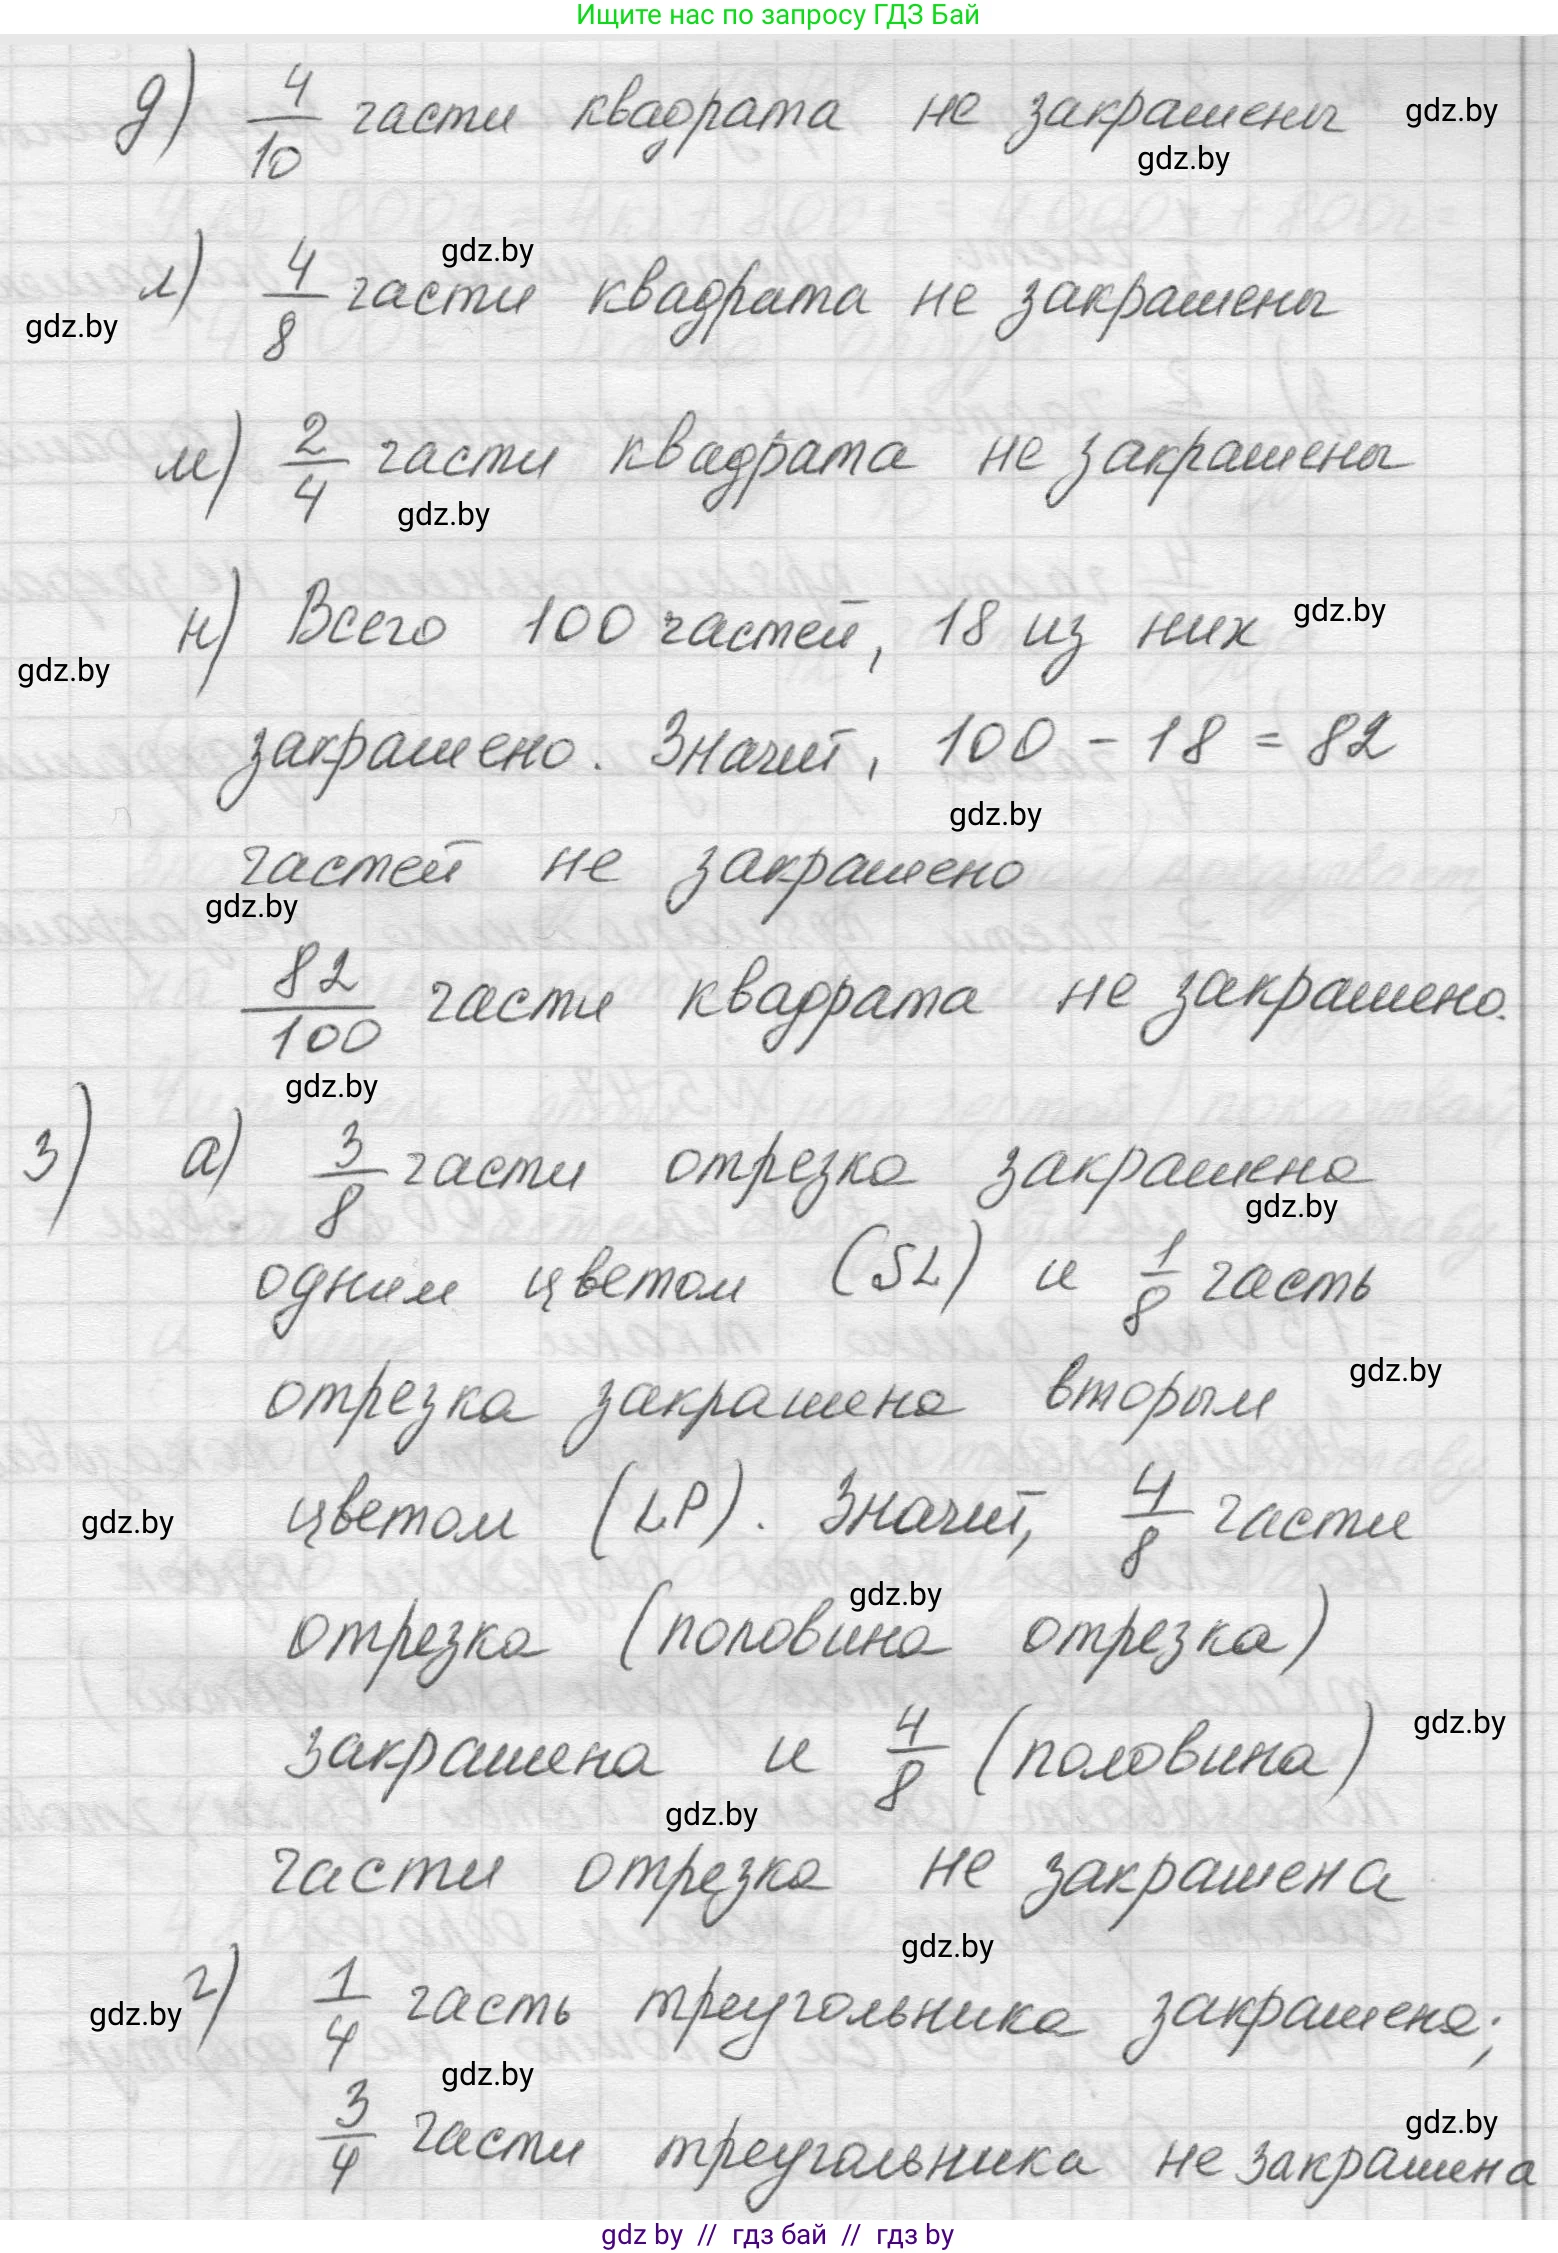 Ищите нас по запросу ГДЗ Бай
д) 4/10 части квадрата не закрашены gdz.by
gdz.by
л) 4/8 части квадрата не закрашены gdz.by
gdz.by
м) 2/4 части квадрата не закрашены
gdz.by
н) Всего 100 частей, 18 из них gdz.by
gdz.by
закрашено. Значит, 100 - 18 = 82
gdz.by
частей не закрашено
gdz.by
82/100 части квадрата не закрашено.
gdz.by
3) а) 3/8 части отрезка закрашена
gdz.by
одним цветом (SL) и 1/8 часть
отрезка закрашена вторым gdz.by
gdz.by цветом (LP). Значит, 4/8 части
gdz.by
отрезка (половина отрезка)
закрашена и 4/8 (половина) gdz.by
gdz.by
части отрезка не закрашена
gdz.by
gdz.by г) 1/4 часть треугольника закрашена;
gdz.by
3/4 части треугольника не закрашена gdz.by
gdz by // гдз бай // гдз by